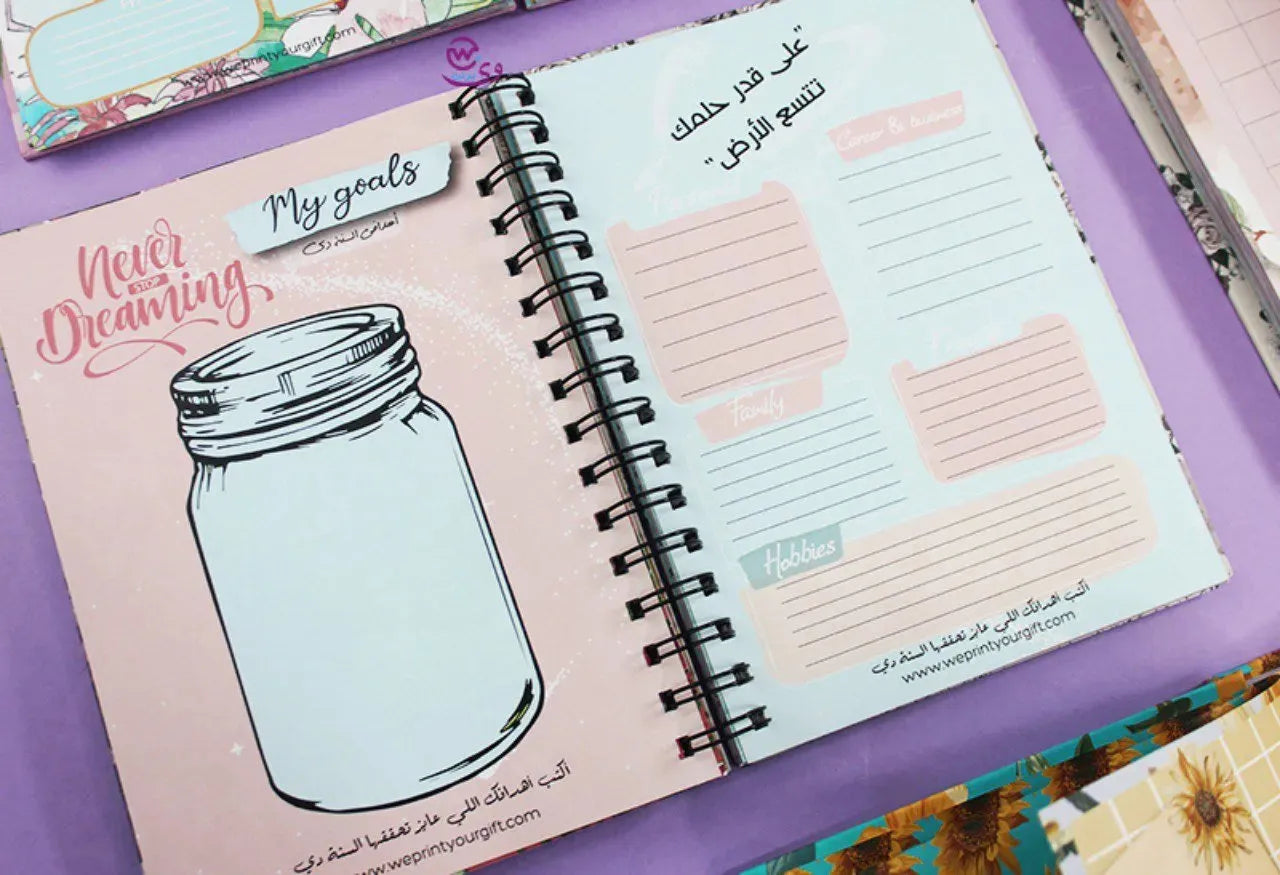 www.weprintyourgift.com
My goals
أهدافي السنة دي
Never
STOP
Dreaming
أكتب أهدافك اللي عايز تحققها السنة دي
www.weprintyourgift.com
"على قدر حلمك
تتسع الأرض"
Career & business
Personal
Family
Hobbies
أكتب أهدافك اللي عايز تحققها السنة دي
www.weprintyourgift.com